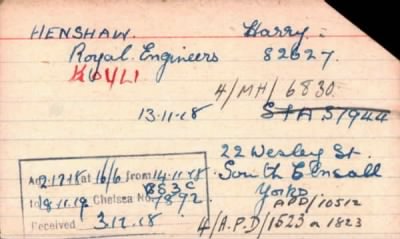 HENSHAW. Harry.
Royal Engineers 82627.
KOYLI
4/MH/6830
13.11.18 STA 51944
22 Wesley St.
South Elmsall
Yorks
APD/10512
Ad 2.12.18 at 16/6 from 14.11.18
to 18.11.19 Chelsea No. 7892
Received 3.12.18
4/A.P.D/1523 a 1823